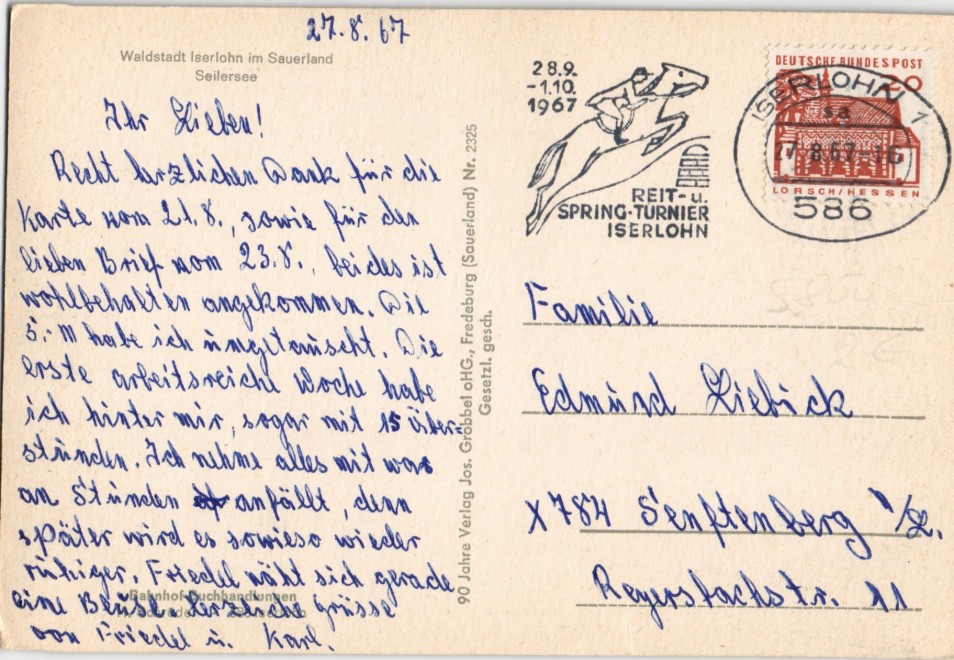 27.8.67
Waldstadt Iserlohn im Sauerland
Seilersee
Ihr Lieben!
Recht herzlichen Dank für die
Karte vom 21.8., sowie für den
lieben Brief vom 23.8., beides ist
wohlbehalten angekommen. Die
5.-M habe ich umgetauscht. Die
erste arbeitsreiche Woche habe
ich hinter mir, sogar mit 15 Über=
stunden. Ich nehme alles mit was
an Stunden anfällt, denn
später wird es sowieso wieder
ruhiger. Friedel näht sich gerade
eine Bluse. Herzliche Grüsse
von Friedel u. Karl.
Bahnhof-Buchhandlungen
90 Jahre Verlag Jos. Grobbel oHG., Fredeburg (Sauerland) Nr. 2325
Gesetzl. gesch.
28.9.
-1.10.
1967
REIT- u.
SPRING-TURNIER
ISERLOHN
DEUTSCHE BUNDESPOST
20
LORSCH/HESSEN
ISERLOHN 1
sa
27.8.67-16
586
Familie
Edmund Liebick
X 784 Senftenberg N/L.
Reyersbachstr. 11